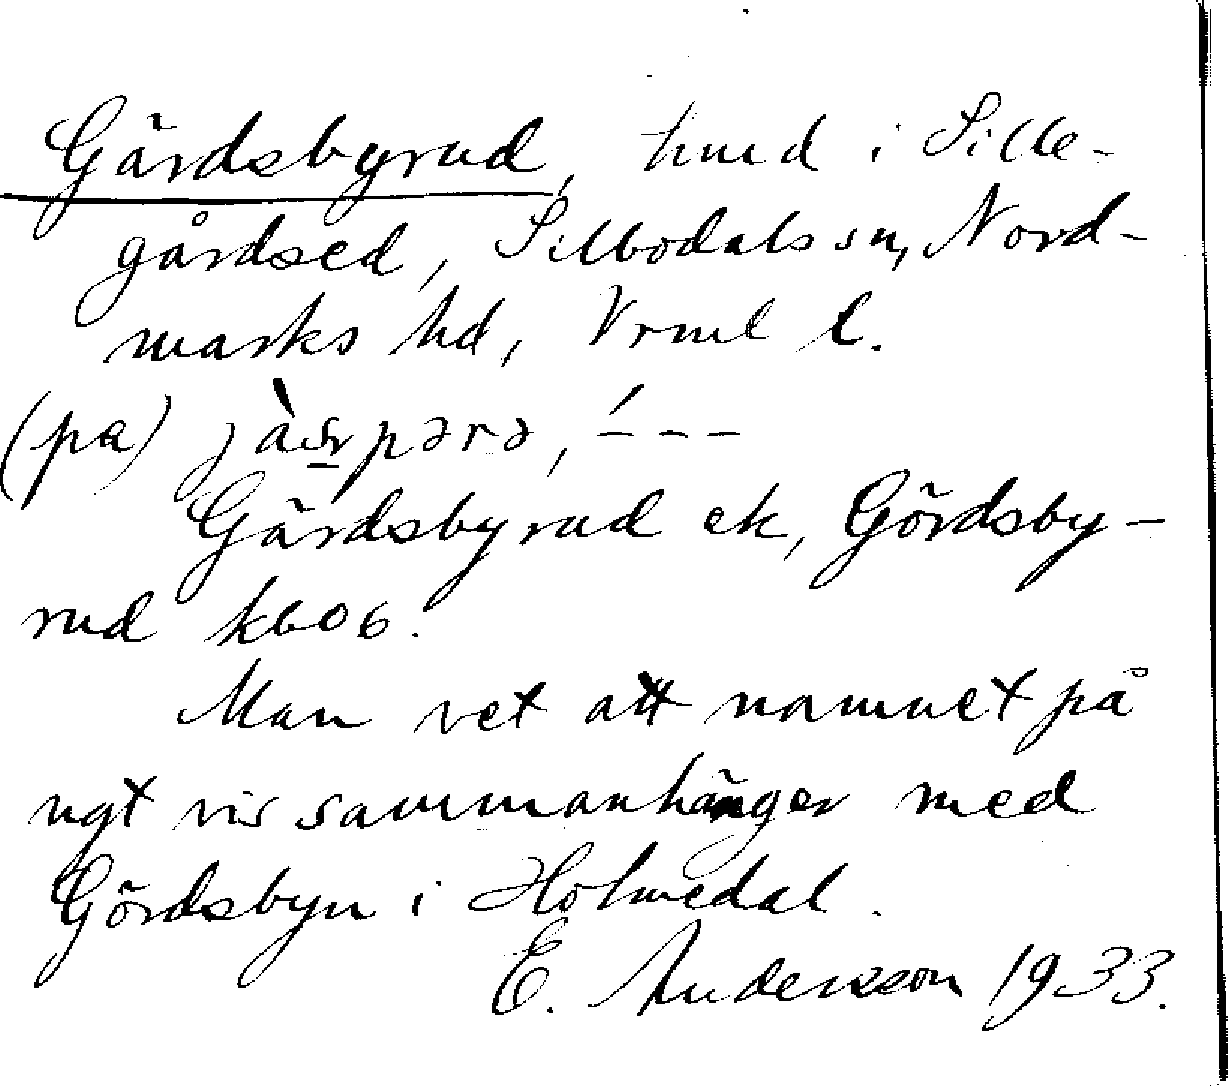 Gärdsbyrud, hmd i Sille-
gårdsed, Sillbodals sn, Nord-
marks hd, Vrml l.
(pa)
Gärdsbyrud ek, Gördsby-
rud kb06.
Man vet att namnet på
ngt vis sammanhänger med
Gördsbyn i Holmedal.
E. Andersson 1933.